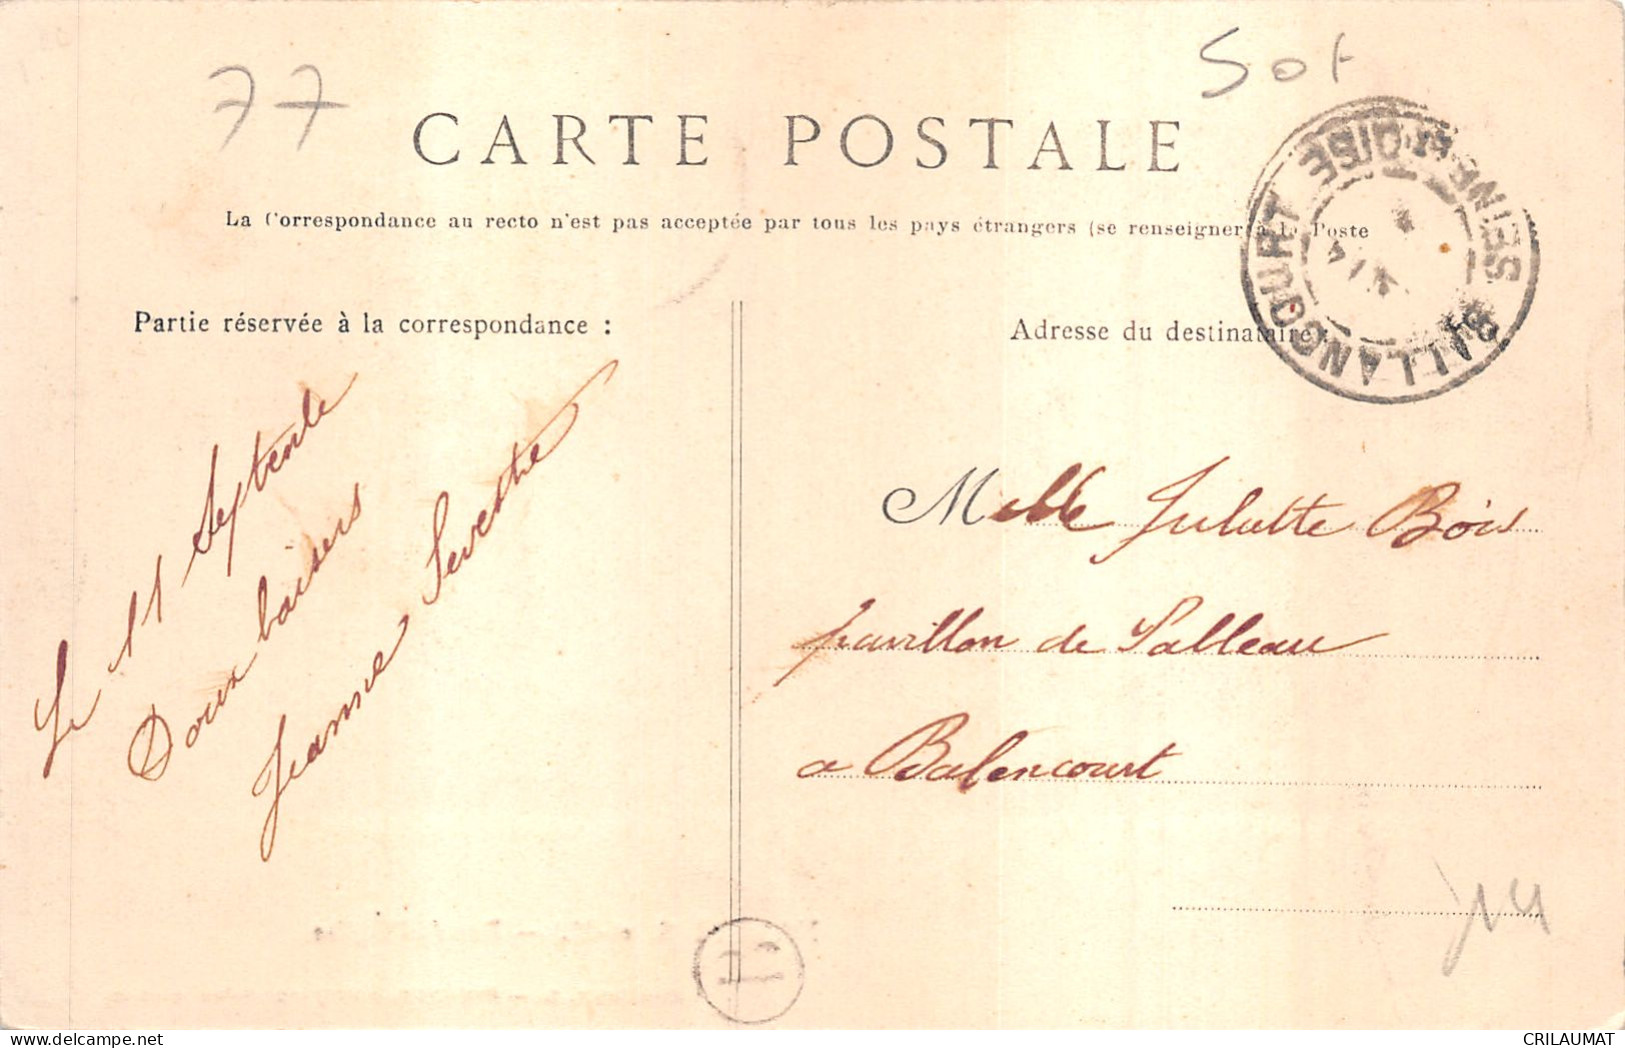 77
Sot
CARTE POSTALE
La Correspondance au recto n'est pas acceptée par tous les pays étrangers (se renseigner à la Poste
BALLANCOURT SEINE-&-OISE
Partie réservée à la correspondance :
Adresse du destinataire
Le 11 Septembre
Doux baisers
Jeanne Sevestre
Melle Juliette Bois
pavillon de Salleau
a Balencourt
CRILAUMAT